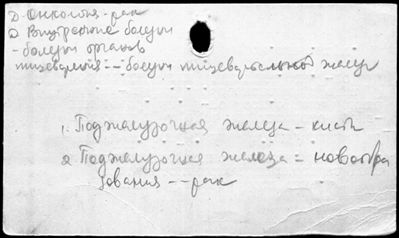 2. Онкология - рак
2 Внутренние болезни
- болезни органов
пищеварения -- болезни пищеварительной желез
1. Поджелудочная железа - кисты
2 Поджелудочная железа = новообра
зования -- рак